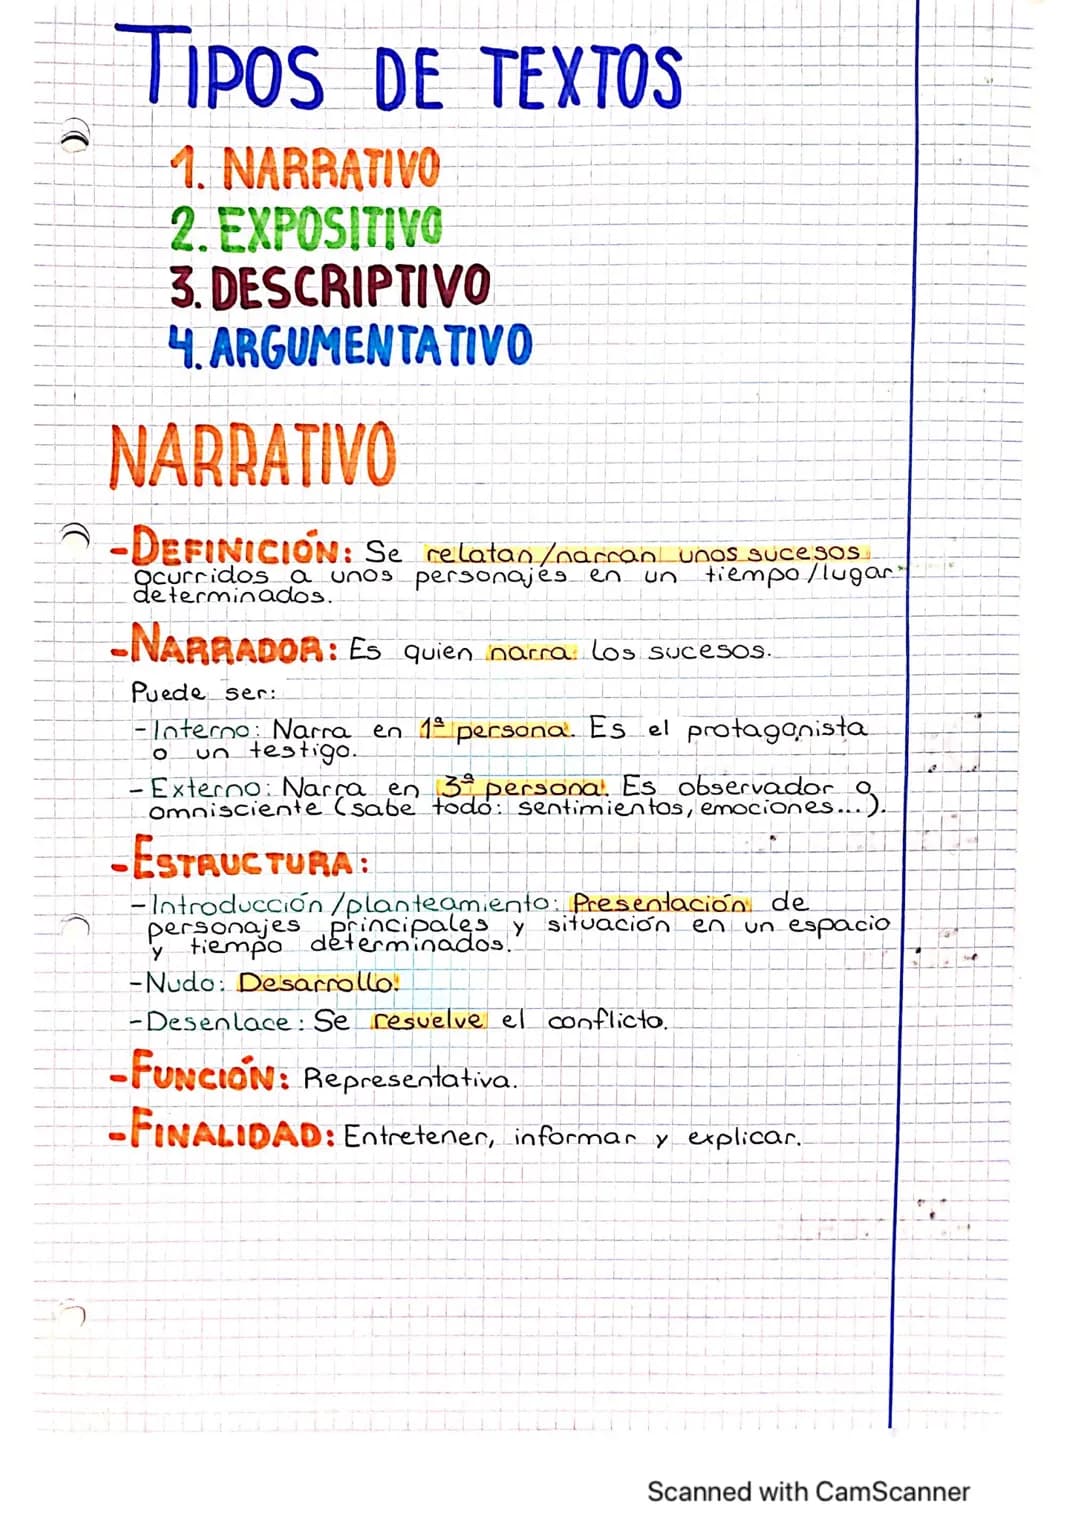 TIPOS DE TEXTOS
1. NARRATIVO
2. EXPOSITIVO
3. DESCRIPTIVO
4. ARGUMENTATIVO
NARRATIVO
-DEFINICIÓN: Se relatan/narran unos sucesos
ocurridos a unos personajes en un tiempo/lugar
determinados.
-NARRADOR: Es quien narra los sucesos.
Puede ser:
-Interno: Narra en 1ª persona. Es el protagonista
o un testigo.
-Externo: Narra en 3ª persona. Es observador o
omnisciente (sabe todo: sentimientos, emociones...).
-ESTRUCTURA:
-Introducción/planteamiento: Presentación de
personajes principales y situación en un espacio
y tiempo determinados.
-Nudo: Desarrollo.
-Desenlace: Se resuelve el conflicto.
-FUNCIÓN: Representativa.
-FINALIDAD: Entretener, informar y explicar.
Scanned with CamScanner